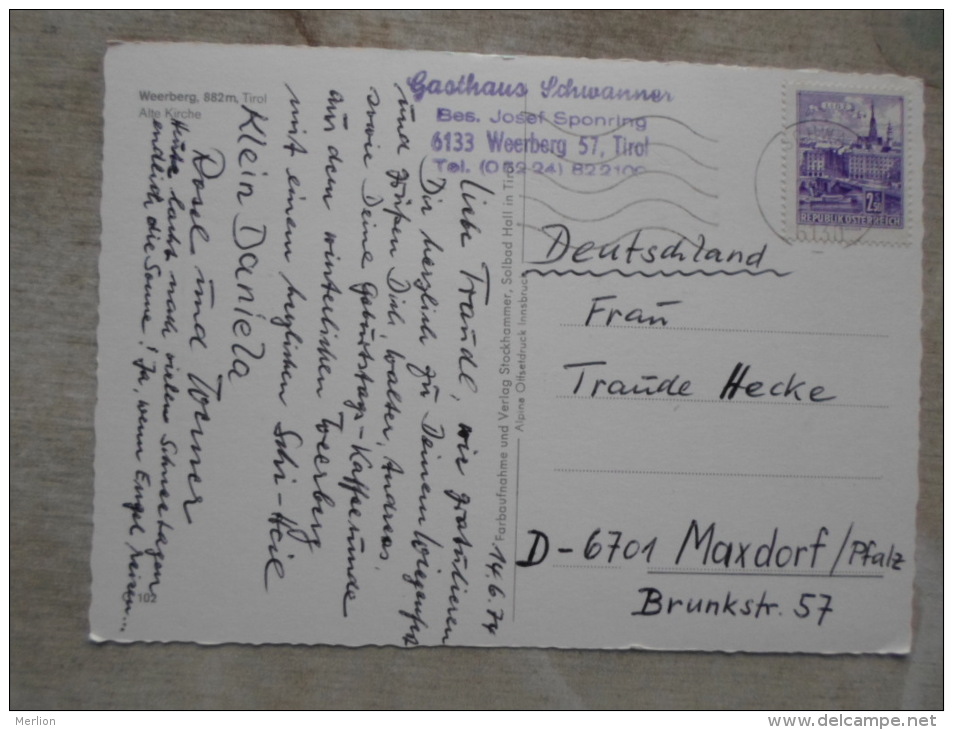 Weerberg, 882m, Tirol
Alte Kirche
Gasthaus Schwanner
Bes. Josef Sponring
6133 Weerberg 57, Tirol
Tel. (0 52 24) 82 2100
REPUBLIK ÖSTERREICH
14.6.74
Liebe Traudl, wir gratulieren
Dir herzlich zu Deinem Wiegenfest
und grüßen Dich, Walter, Andreas,
sowie Deine Geburtstags-Kaffeerunde
aus dem winterlichen Weerberg
mit einem herzlichen Schi-Heil
Klein Daniela
Rosl und Werner
Heute lacht nach vielen Schneetagen
endlich die Sonne! Ja, wenn Engel reisen...
C 102
Farbaufnahme und Verlag Stockhammer, Solbad Hall in Tirol
Alpine Offsetdruck Innsbruck
Deutschland
Frau
Traude Hecke
D-6701 Maxdorf/Pfalz
Brunkstr. 57
Merlion
www.delcampe.net